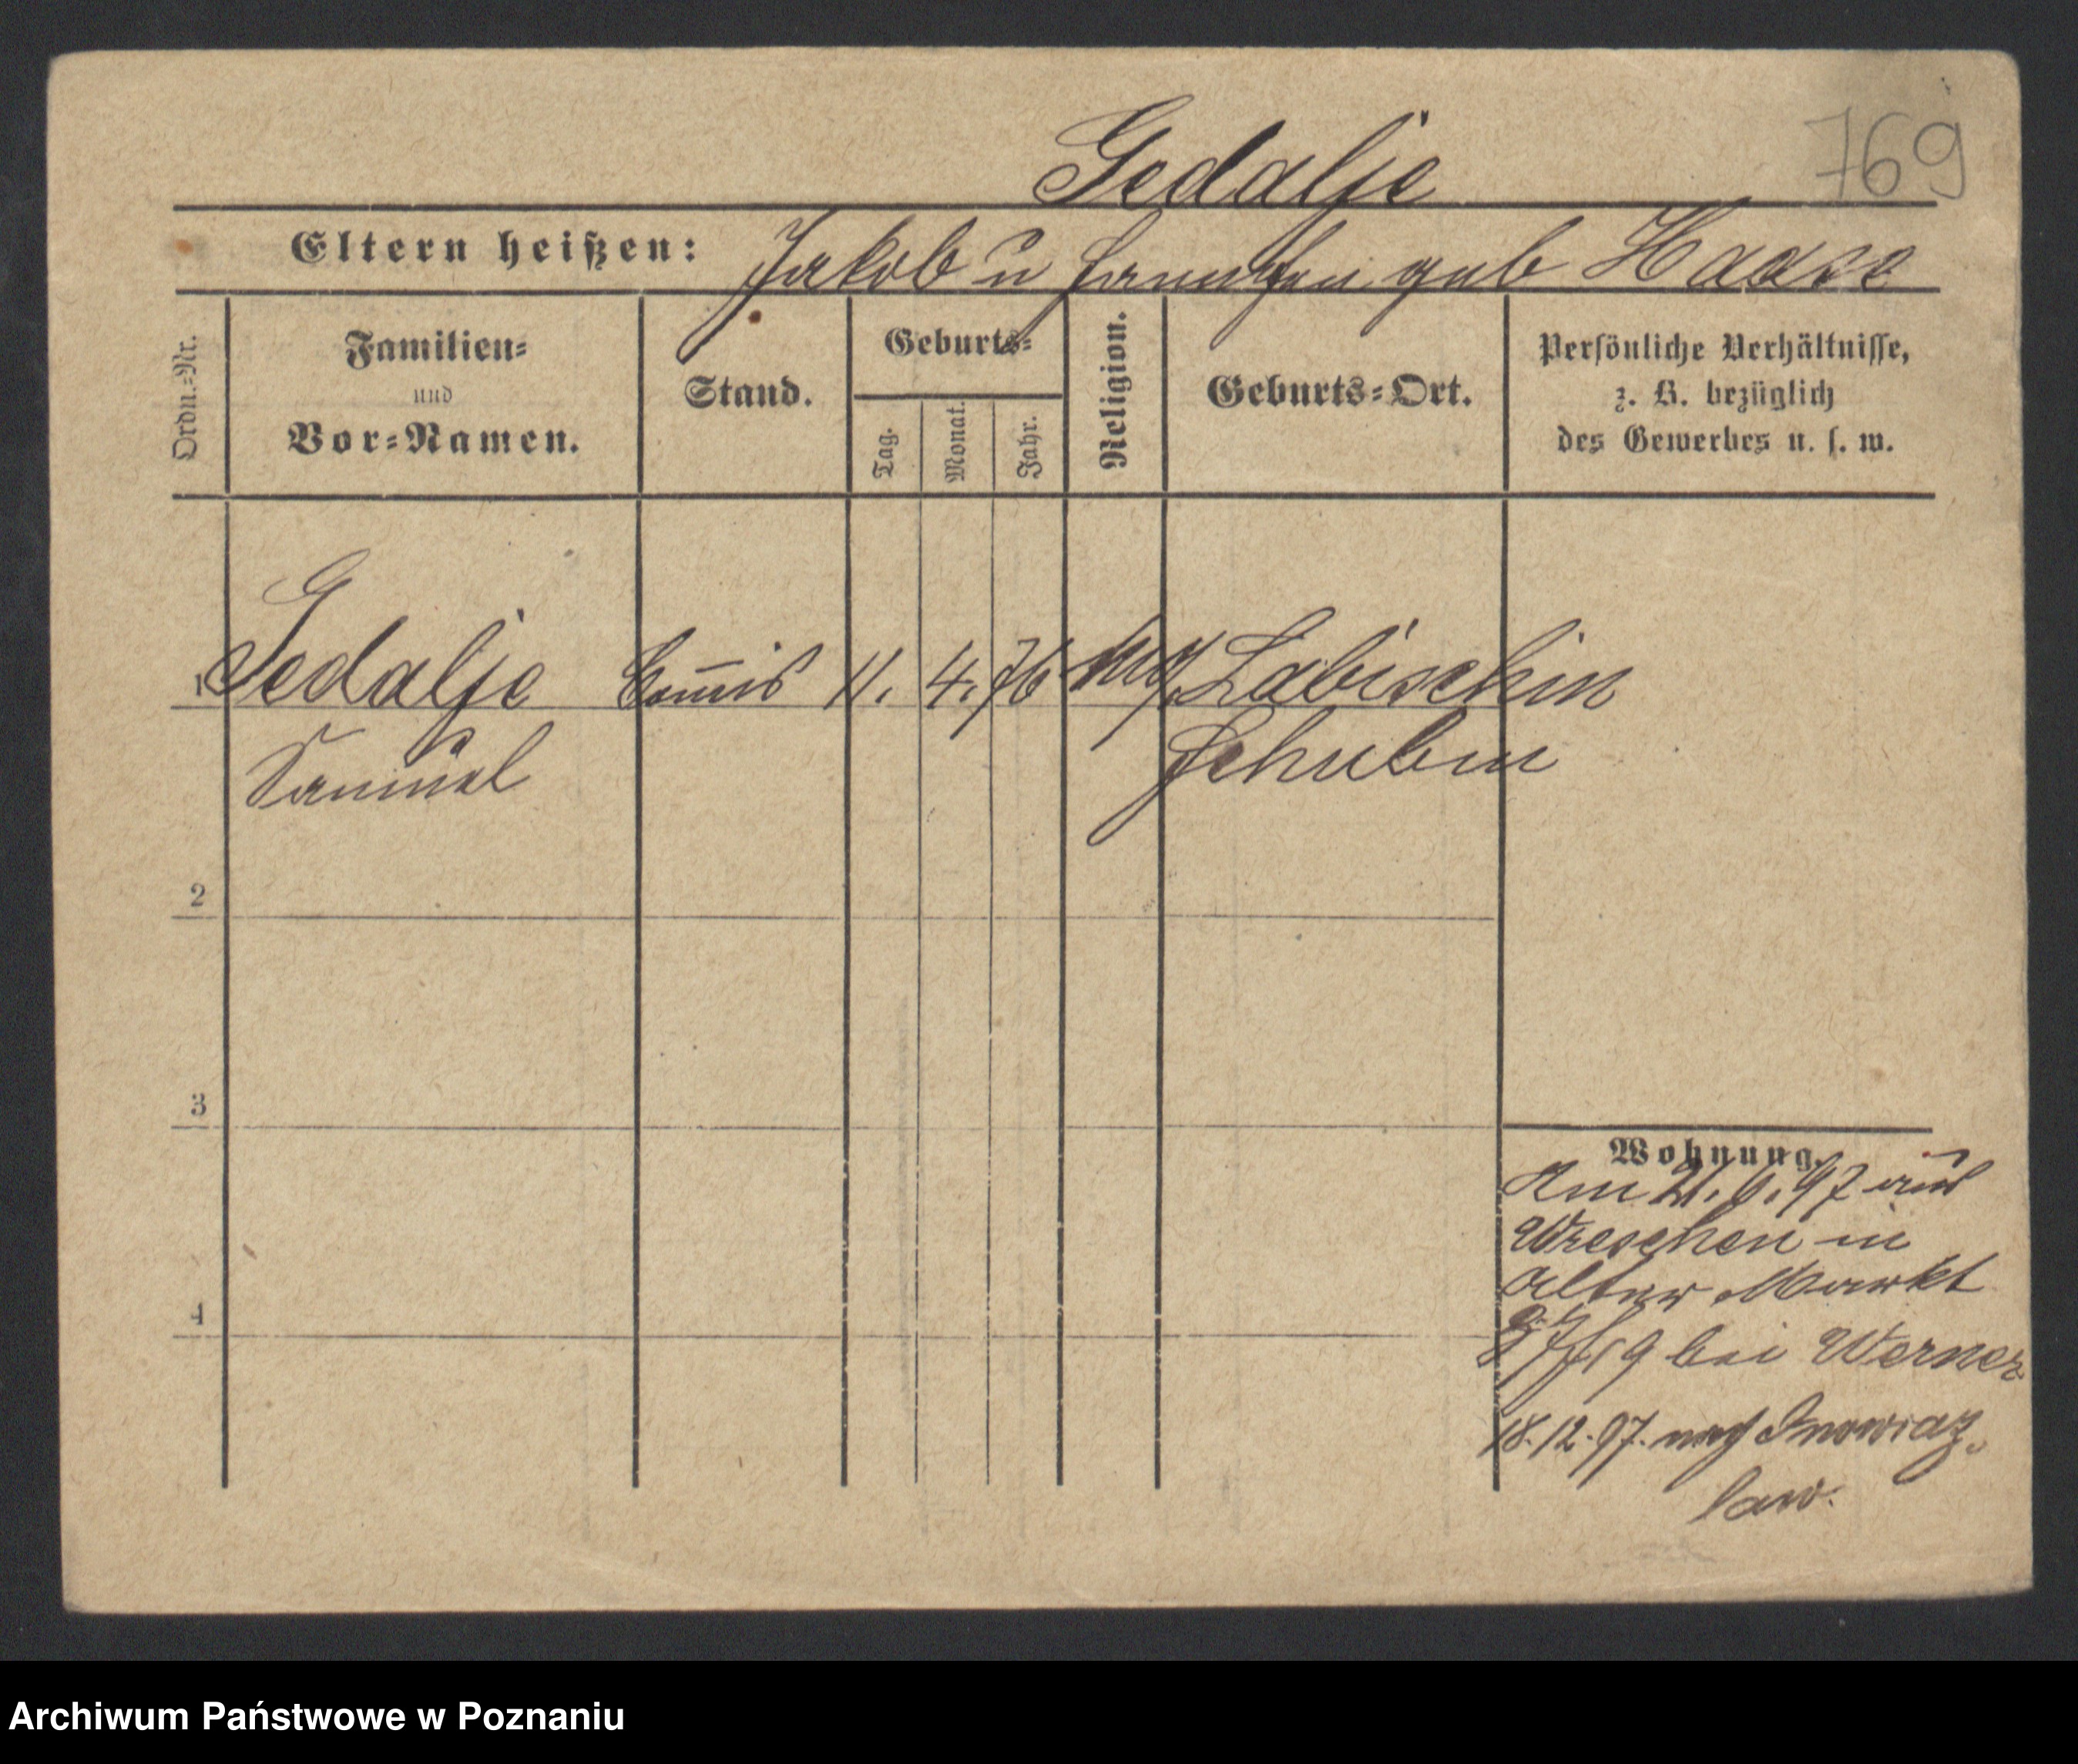 Gedalje
769
Eltern heißen: Jakob u geb Haase
Ordn.-Nr.
Familien-
und
Vor-Namen.
Stand.
Geburts-
Tag.
Monat.
Jahr.
Religion.
Geburts-Ort.
Persönliche Verhältnisse,
z. B. bezüglich
des Gewerbes u. s. w.
1 Gedalje Com̅is 11. 4. 76 Labischin
Samuel Schubin
2
3
4
Wohnung.
Am 21. 6. 97 aus
Wreschen in
Alter Markt
bei Werner
18.12.97. nach Inowraz-
law.
Archiwum Państwowe w Poznaniu